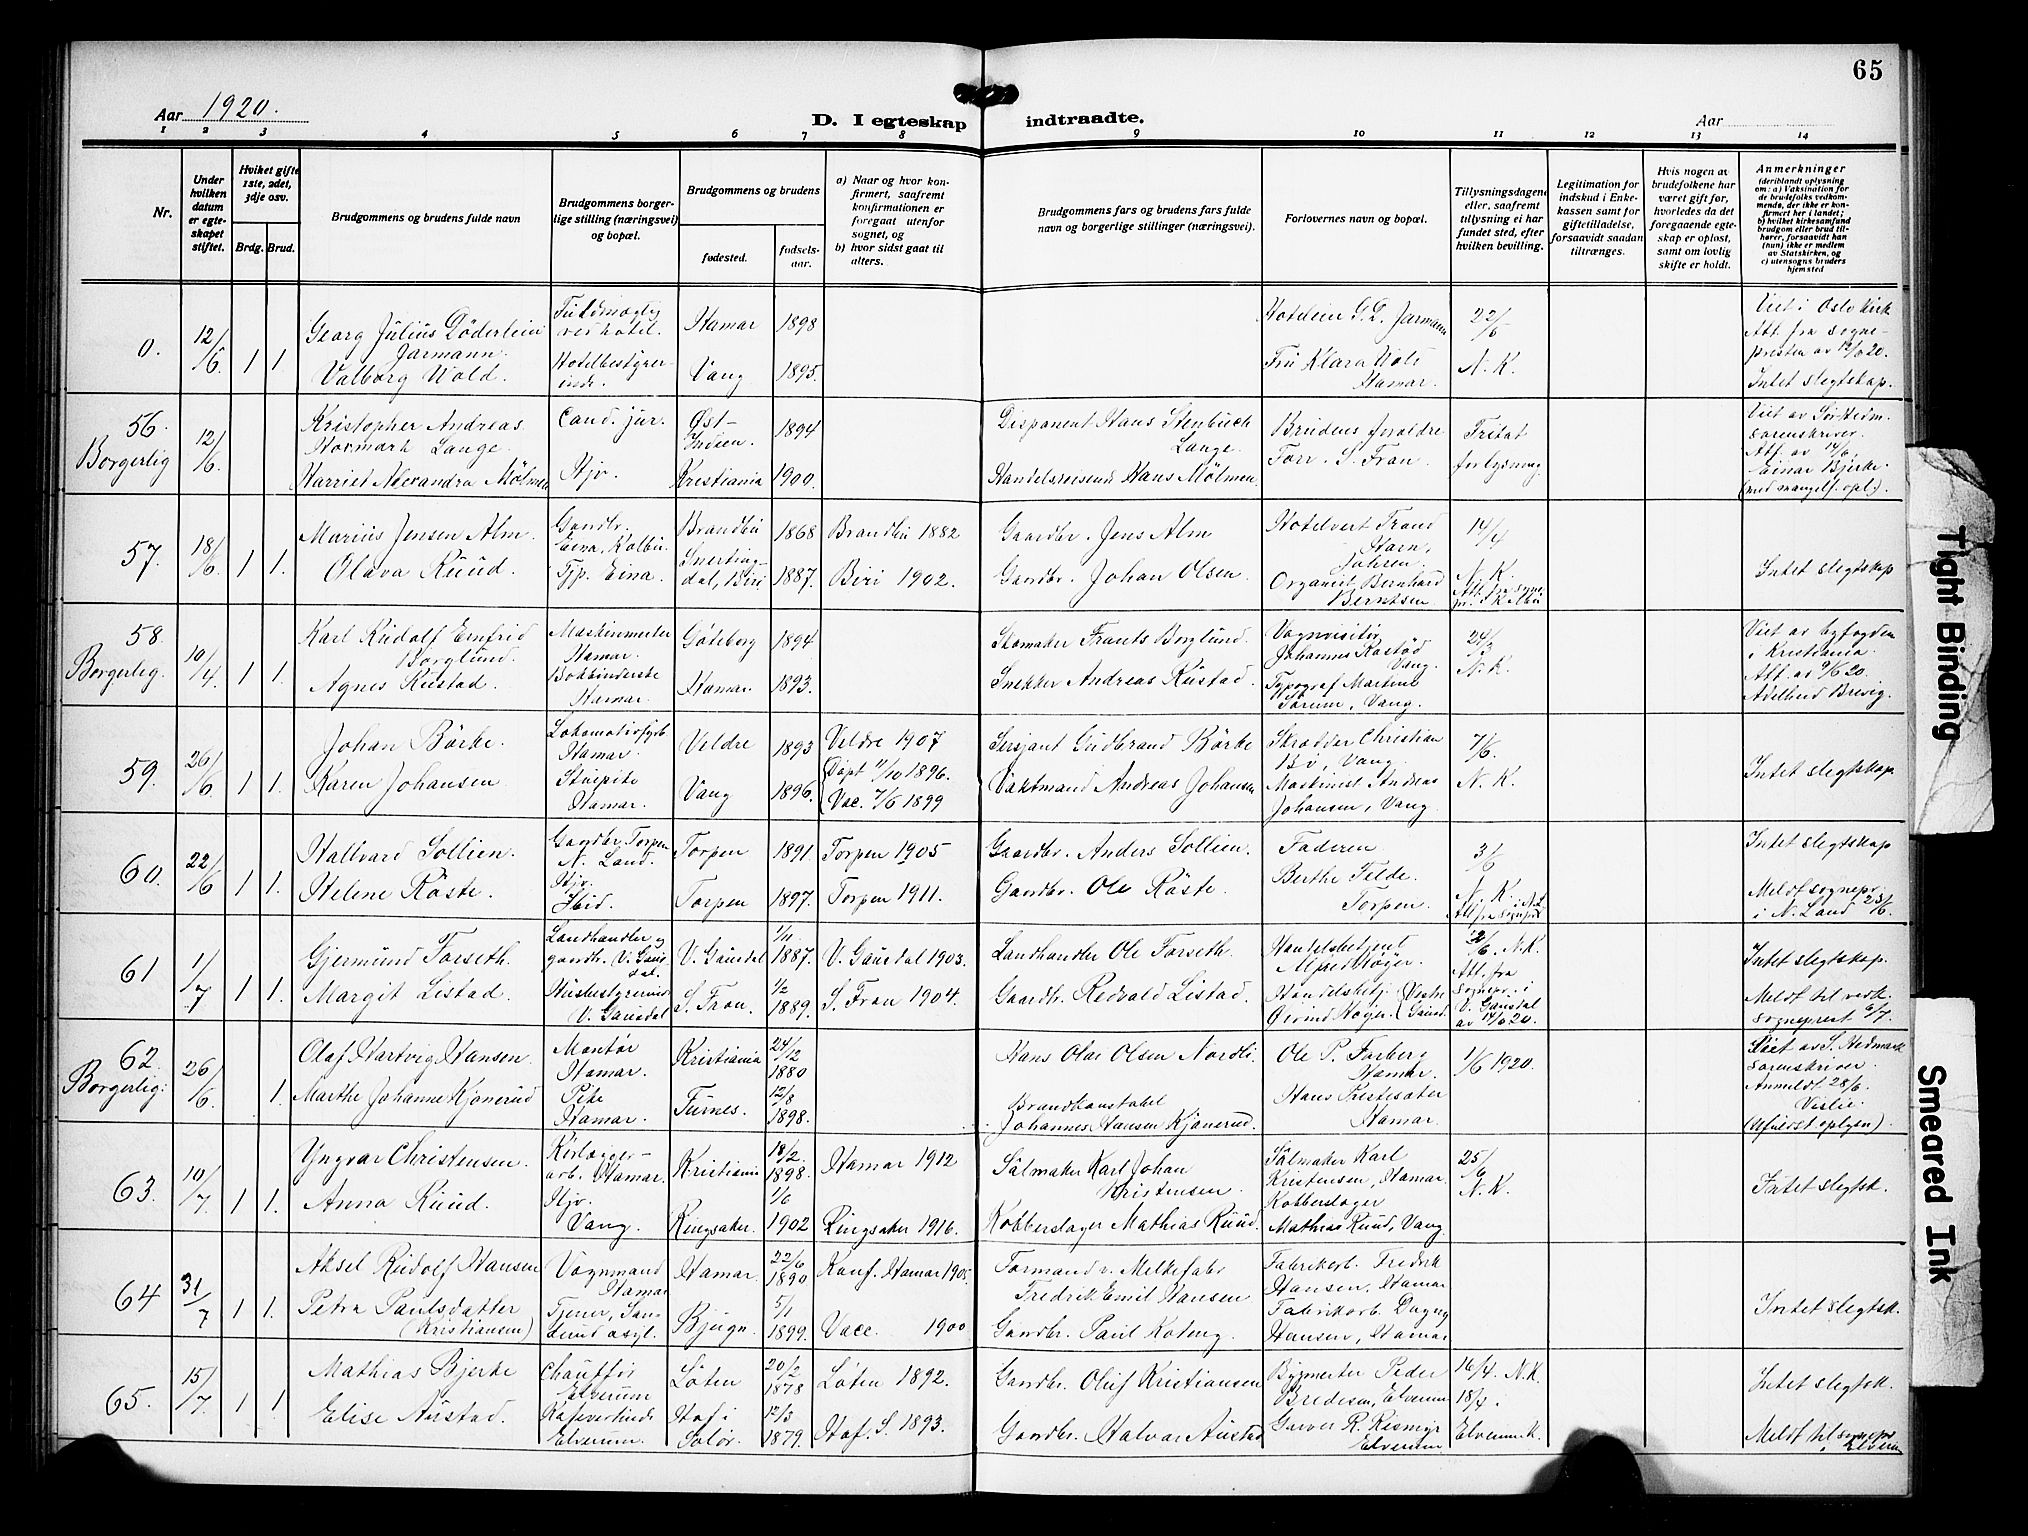 65
Aar 1920.
D. I egteskap indtraadte.
Aar
1 2 3 4 5 6 7 8 9 10 11 12 13 14
Nr.
Under hvilken datum er egteskapet stiftet.
Hvilket gifte 1ste, 2det, 3dje osv.
Brdg. Brud.
Brudgommens og brudens fulde navn
Brudgommens borgerlige stilling (næringsvei) og bopæl.
Brudgommens og brudens
fødested.
fødselsaar.
a) Naar og hvor konfirmert, saafremt konfirmationen er foregaat utenfor sognet, og
b) hvor sidst gaat til alters.
Brudgommens fars og brudens fars fulde navn og borgerlige stillinger (næringsvei).
Forlovernes navn og bopæl.
Tillysningsdagene eller, saafremt tillysning ei har fundet sted, efter hvilken bevilling.
Legitimation for indskud i Enkekassen samt for giftetilladelse, forsaavidt saadan tiltrænges.
Hvis nogen av brudefolkene har været gift før, hvorledes da det foregaaende egteskap er opløst, samt om lovlig skifte er holdt.
Anmerkninger (deriblandt oplysning om: a) Vaksination for de brudefolks vedkommende, der ikke er konfirmert her i landet; b) hvilket kirkesamfund brudgom eller brud tilhører, forsaavidt han (hun) ikke er medlem av Statskirken, og c) utensogns bruders hjemsted
0. 12/6 1 1. Georg Julius Döderlein Jarmann. Hamar 1898 22/5
Valborg Wold. Hotelbestyrerinde. Vang 1895. Fru Klara Hamar. N. K.
Viet i Oslo kirk Att. fra sognepresten av 12/6 20. Intet slegtskap.
56. Borgerlig 12/6 Kristopher Andreas Normark Lange. Cand. jur. Øst-Indien. 1894 Disponent Hans Stenbuch Lange. Brudens foreldre Fritat
Harriet Alexandra Mölmen Hjv. Kristiania 1900. Handelsreisende Hans Mölmen. Forr. S. Fron. forlysning
Viet av Sør-Hedm. sorenskriver. Att. av 14/6, Einar Bjerke. (med mangelf. opl.).
57. 18/6 1 1. Marius Jensen Alm. Gaardbr. Eina, Kolbu. Brandbu 1868 Brandbu 1882 Gaardbr. Jens Alm Hotelvert Trand 14/4
Olava Ruud. Tjp. Eina. Snertingdal, Biri 1887. Biri 1902. Gaardbr. Johan Olsen. Organist Bernhard Berntsen. N. K.
Intet slegtskap
58. Borgerlig. 10/4 1 1. Karl Rudolf Emfrid Borglund. Maskinmester Hamar. Göteborg 1894 Skomaker Frants Borglund. Vognvisitör Johannes Kastöd Vang. 24/3 N. K.
Agnes Rustad. Bokbinderske Hamar. Hamar. 1893. Snekker Andreas Rustad. Typograf Martens Sörum, Vang.
Viet av byfogden i Kristiania. Att. av 9/6 20. Adelbud Brevig.
59. 26/6 1 1. Johan Börke. Lokomotivfyrb. Hamar. Veldre 1893 Veldre 1907 Sersjant Gudbrand Börke Skredder Christian Bö, Vang. 7/6
Karen Johansen Stuepike Hamar. Vang 1896. (Döpt 11/10 1896. (Vac. 7/6 1899 Vaktmand Andreas Johansen Maskinist Andreas Johansen, Vang. N. K.
Intet slegtskap.
60. 22/6 1 1. Hallvard Sollien. Gaardbr. Torpen N. Land. Torpen 1891. Torpen 1905 Gaardbr. Anders Sollien. Faderen 3/6
Helene Röste. Hjv. Ibid. Torpen 1897. Torpen 1911. Gaardbr. Ole Röste. Berthe Felde. Torpen. N. K.
Intet slegtskap Meldt sognepr. i N. Land 23/6.
61 1/7 1 1. Gjermund Forseth. Landhandler og gaardb. V. Gausdal. V. Gausdal 1/11 1887. V. Gausdal 1903. Landhandler Ole Forseth. Handelsbetjent Alfred Höyer. 12/6. N.K.
Margit Listad. Husbestyrerinde V. Gausdal S. Fron. 1/2 1889. S. Fron 1904. Gaardbr. Redvald Listad. Handelsbetj. Öivind Höyer. (Vestre Gausd. Att. fra sognepr. i V. Gausdal av 14/6 20.
Intet slegtskap. Meldt til vedk. sogneprest 6/7.
62. Borgerlig. 26/6 1. Olaf Hartvig Hansen. Montör Hamar. Kristiania 24/12 1880 Hans Olai Olsen Nordli. Ole P. Farberg Hamar. 1/6 1920.
Marthe Johanne Kjonerud Pike Hamar. Furnes. 12/8 1898. Brandkonstabel Johannes Hansen Kjonerud. Hans Prestesæter Hamar.
Viet av S. Hedmark sorenskriver. Anmeldt 28/6. Vislie. (Ufuldst. oplysn.).
63. 10/7 1 1. Yngvar Christensen. Rörlegger-arb. Hamar. Kristiania 18/2 1898. Hamar 1912 Salmaker Karl Johan Kristensen. Salmaker Karl Kristensen, Hamar. 25/6 N. K.
Anna Ruud. Hjv. Vang. Ringsaker. 1/6 1902 Ringsaker 1916. Kobberslager Mathias Ruud. Kobberslager Mathias Ruud, Vang.
Intet slegtsk.
64 31/7 1 1. Aksel Rudolf Hansen Vognmand Hamar Hamar. 22/6 1890 Konf. Hamar 1905. Formand v. Melkefabr. Fredrik Emil Hansen Fabrikarb. Fredrik Hansen, Hamar
Petra Paulsdatter (Kristiansen) Bjugn. 5/1 1899. Vacc. 1900 Gaardbr. Paul Koteng. Fabrikarb. Dagny Hansen, Hamar
Intet slegtsk.
65. 15/7 1 1. Mathias Bjerke Chauffør Elverum Løten 20/2 1878 Løten 1892. Gaardbr. Oluf Kristiansen Bygmester Peder Bredesen, Elverum 16/4. N.K. 18/4 i
Elise Austad. Kafevertinde Elverum. Hof i Solør. 12/3 1879. Hof. S. 1893. Gaardbr. Halvor Austad Garver R. Rismyr Elverum Elverum K.
Intet slegtsk. Meldt til sognepr. i Elverum
Tight Binding
Smeared Ink